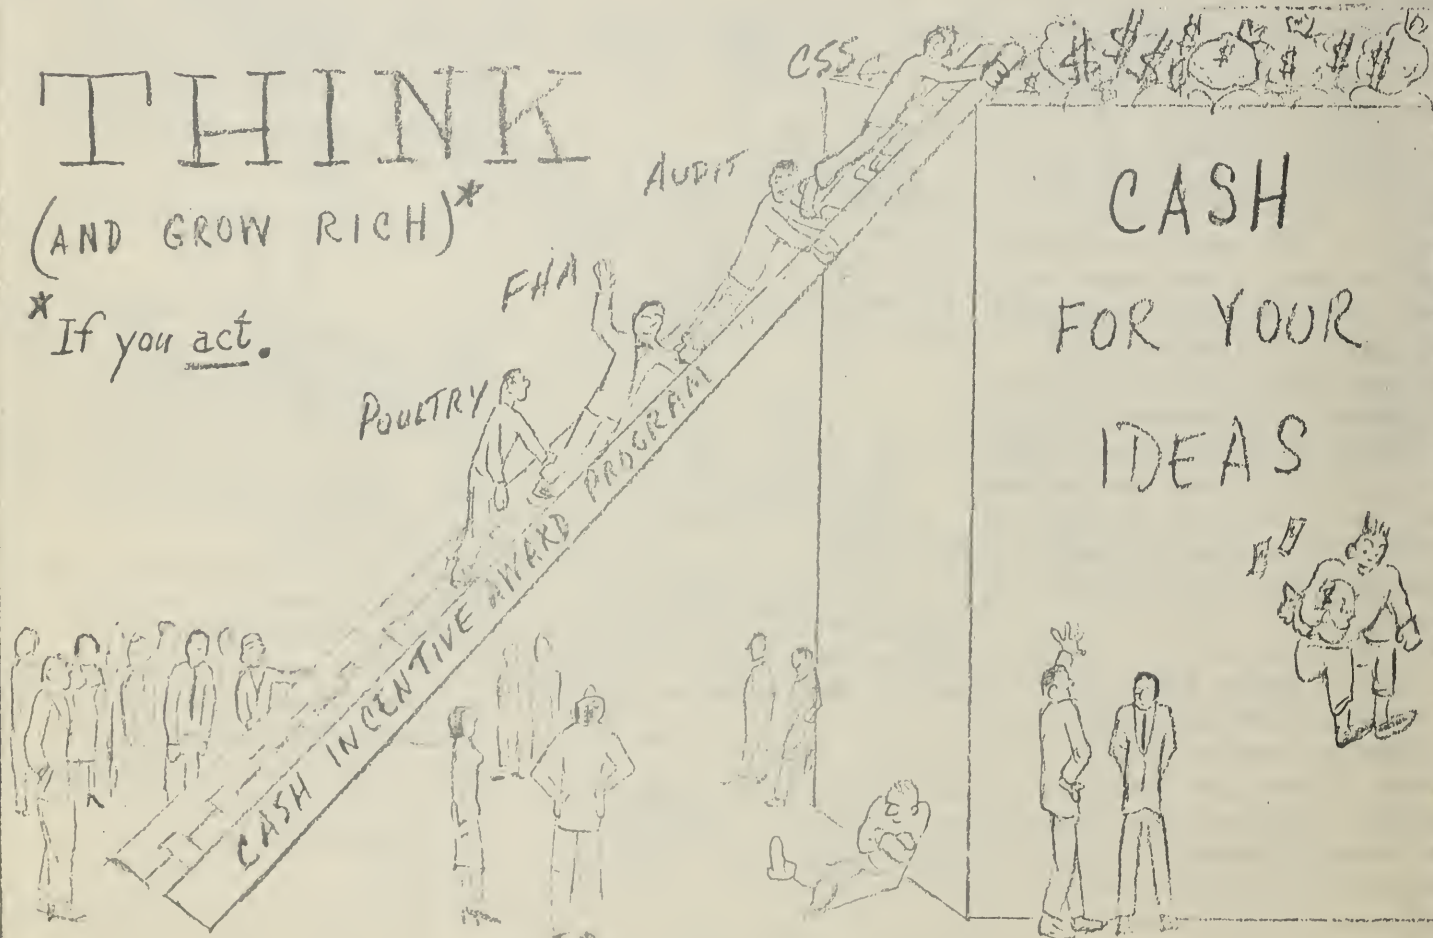 THINK
(AND GROW RICH)*
*If you act.
CSS
AUDIT
FHA
POULTRY
CASH INCENTIVE AWARD PROGRAM
CASH
FOR YOUR
IDEAS